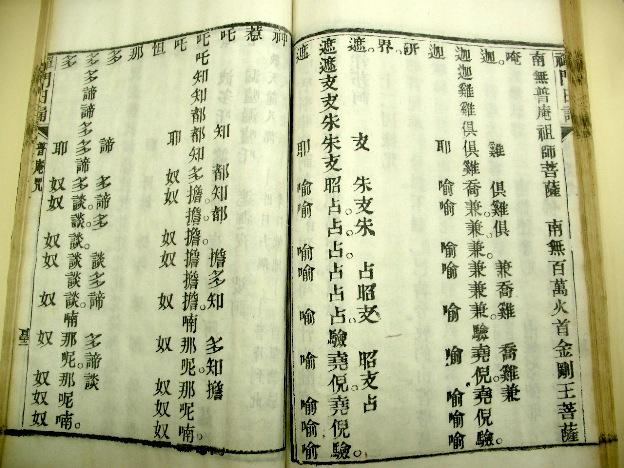 禪門日誦
南無普庵祖師菩薩　南無百萬火首金剛王菩薩
唵。
迦。雞俱雞俱兼喬雞喬雞兼
迦迦雞雞俱俱雞喬兼。兼。兼。兼兼兼。驗堯倪堯倪驗。
迦耶喻喻喻喻喻喻喻喻喻
研
界。
遮。支朱支朱占昭支昭支占
遮遮支支朱朱支昭占。占。占。占占占。驗堯倪堯倪驗。
遮耶喻喻喻喻喻喻喻喻喻
神
惹。
吒知都知都擔多知多知擔
吒吒知知都都知多擔。擔。擔。擔擔擔喃那呢。那呢喃。
吒耶奴奴奴奴奴奴奴奴奴
怛
那
多諦多諦多談多諦多諦談
多多諦諦多多諦多談。談。談。談談談。喃那呢。那呢喃。
多耶奴奴奴奴奴奴奴奴奴
禪門日誦　普庵咒